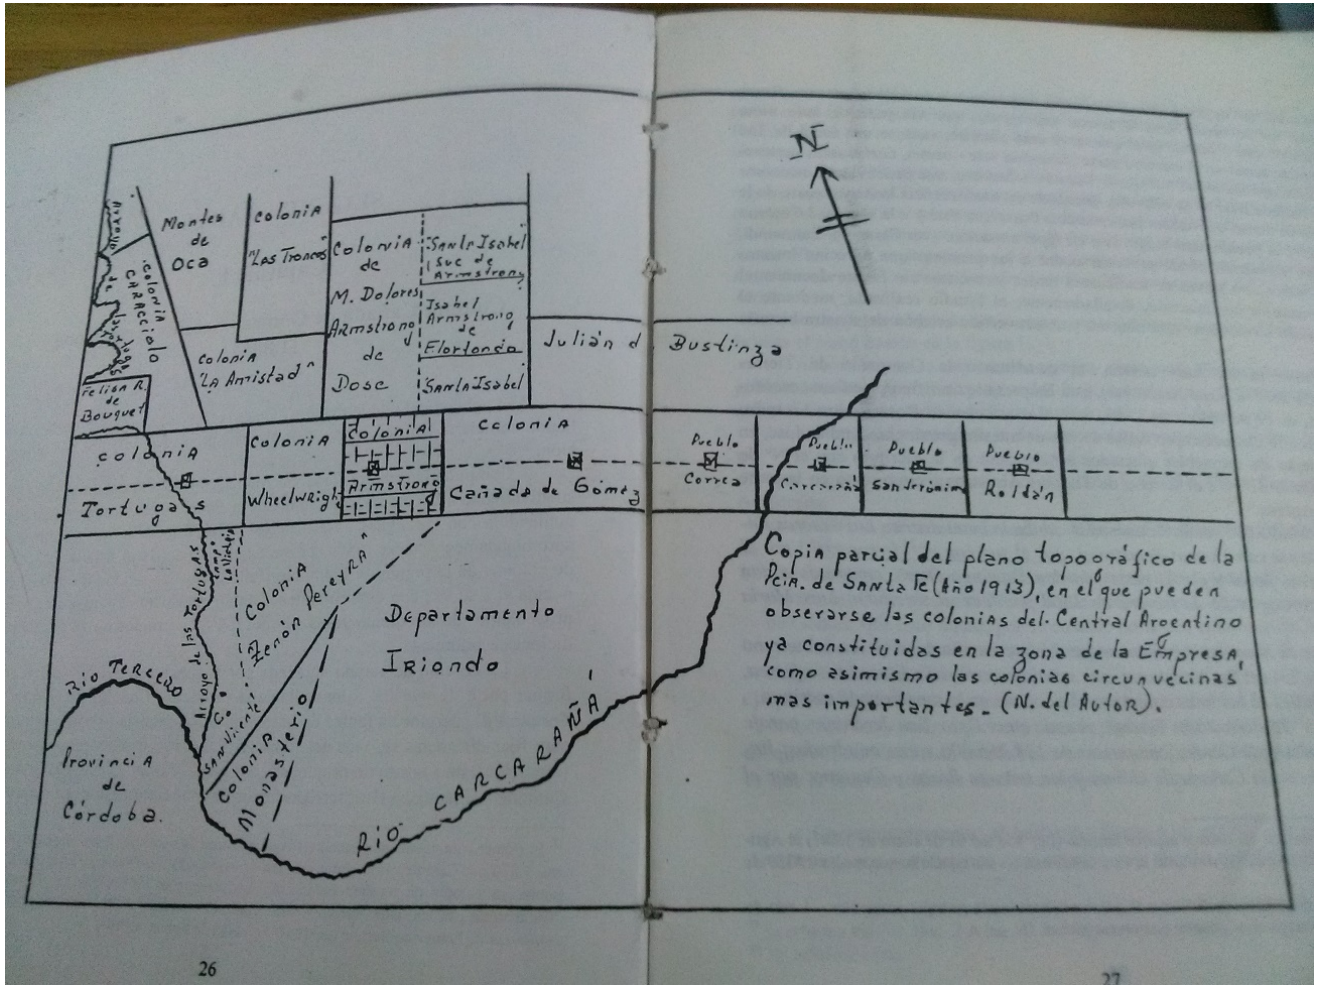 N
Arroyo de las Tortugas
Colonia
CARACCIOLO
Montes
de
Oca
Colonia
"Las Troncos"
Colonia
de
M. Dolores
Armstrong
de
Dose
Santa Isabel
(Suc de
Armstrong
Isabel
Armstrong
de
Elortondo
Santa Isabel
Julián d. Bustinza
Colonia
"LA Amistad"
Felisa R.
de
Bouquet
Colonia
Tortugas
Colonia
Wheelwright
Colonia
Armstrong
Colonia
Cañada de Gómez
Pueblo
Correa
Pueblo
Carcarañá
Pueblo
San Jerónimo
Pueblo
Roldán
Arroyo de las Tortugas
Campo
Colonia
"Zenón Pereyra"
Departamento
Iriondo
RIO TERCERO
Cº
SAN Vicente
Colonia
Monasterio
Provincia
de
Córdoba.
RIO CARCARAÑÁ
Copia parcial del plano topográfico de la
Pcia. de SANTA FE (Año 1913), en el que pueden
obserarse las colonias del Central Argentino
ya constituidas en la zona de la EmpresA,
como asimismo las colonias circunvecinas
mas importantes. (N. del AutoR).
26
27